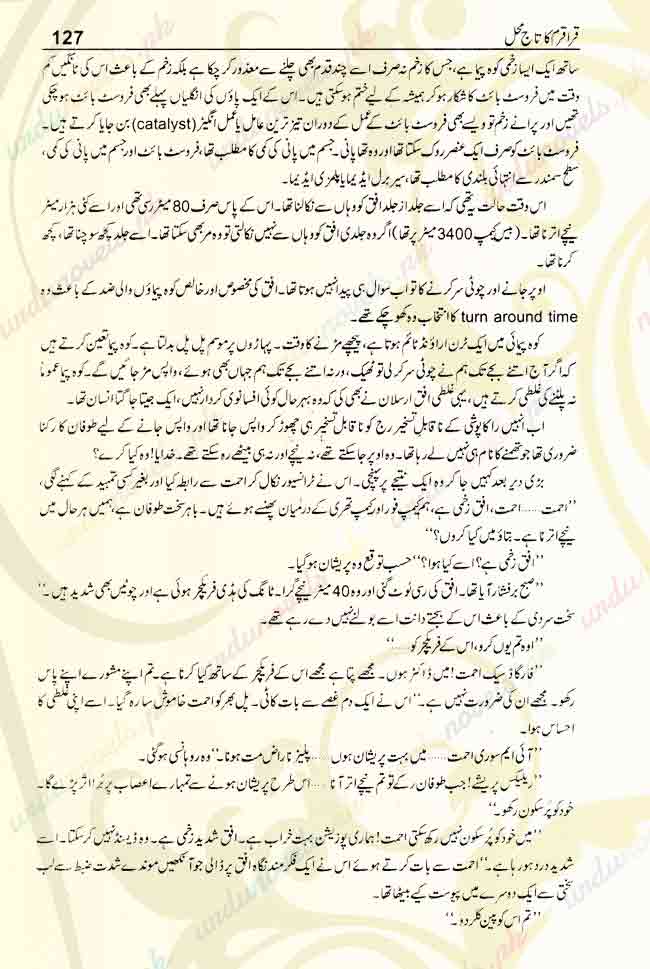 قراقرم کا تاج محل 127
ساتھ ایک ایسا زخمی کوہ پیما ہے، جس کا زخم نہ صرف اسے چند قدم بھی چلنے سے معذور کر چکا ہے بلکہ زخم کے باعث اس کی ٹانگیں کم
وقت میں فروسٹ بائٹ کا شکار ہو کر ہمیشہ کے لیے ختم ہو سکتی ہیں۔ اس کے ایک پاؤں کی انگلیاں پہلے بھی فروسٹ بائٹ ہو چکی
تھیں اور پرانے زخم تو ویسے بھی فروسٹ بائٹ کے عمل کے دوران تیز ترین عامل یا عمل انگیز (catalyst) بن جایا کرتے ہیں۔
فروسٹ بائٹ کو صرف ایک عنصر روک سکتا تھا اور وہ تھا پانی۔ جسم میں پانی کی کمی کا مطلب تھا، فروسٹ بائٹ اور جسم میں پانی کی کمی،
سطح سمندر سے انتہائی بلندی کا مطلب تھا، سیربرل ایڈیما یا پلمزی ایڈیما۔
اس وقت حالت یہ تھی کہ اسے جلد از جلد افق کو وہاں سے نکالنا تھا۔ اس کے پاس صرف 80 میٹر رسی تھی اور اسے کئی ہزار میٹر
نیچے اترنا تھا۔ (بیس کیمپ 3400 میٹر پر تھا) اگر وہ جلدی افق کو وہاں سے نہیں نکالتی تو وہ مر بھی سکتا تھا۔ اسے جلد کچھ سوچنا تھا، کچھ
کرنا تھا۔
اوپر جانے اور چوٹی سر کرنے کا تو اب سوال ہی پیدا نہیں ہوتا تھا۔ افق کی مخصوص اور خالص کوہ پیماؤں والی ضد کے باعث وہ
turn around time کا انتخاب وہ کھو چکے تھے۔
کوہ پیمائی میں ایک ٹرن اراؤنڈ ٹائم ہوتا ہے، پیچھے مڑنے کا وقت۔ پہاڑوں پر موسم پل پل بدلتا ہے۔ کوہ پیما تعین کرتے ہیں
کہ اگر آج اتنے بجے تک ہم نے چوٹی سر کر لی تو ٹھیک، ورنہ اتنے بجے تک ہم جہاں بھی ہوئے، واپس مڑ جائیں گے۔ کوہ پیما عموماً
نہ پلٹنے کی غلطی کرتے ہیں، یہی غلطی افق ارسلان نے بھی کی کہ وہ بہرحال کوئی افسانوی کردار نہیں، ایک جیتا جاگتا انسان تھا۔
اب انہیں راکاپوشی کے ناقابلِ تسخیر رج کو ناقابلِ تسخیر ہی چھوڑ کر واپس جانا تھا اور واپس جانے کے لیے طوفان کا رکنا
ضروری تھا جو تھمنے کا نام ہی نہیں لے رہا تھا۔ وہ اوپر جا سکتے تھے، نہ نیچے اور نہ ہی بیٹھے رہ سکتے تھے۔ خدایا! وہ کیا کرے؟
بڑی دیر بعد کہیں جا کر وہ ایک نتیجے پر پہنچی۔ اس نے ٹرانسیور نکال کر احمت سے رابطہ کیا اور بغیر کسی تمہید کے کہنے لگی،
’’احمت......احمت، افق زخمی ہے، ہم کیمپ فور اور کیمپ تھری کے درمیان پھنسے ہوئے ہیں۔ باہر سخت طوفان ہے، ہمیں ہر حال میں
نیچے اترنا ہے۔ بتاؤ میں کیا کروں؟‘‘
’’افق زخمی ہے؟ اسے کیا ہوا؟‘‘ حسب توقع وہ پریشان ہو گیا۔
’’صبح برفشار آیا تھا۔ افق کی رسی ٹوٹ گئی اور وہ 40 میٹر نیچے گرا۔ ٹانگ کی ہڈی فریکچر ہوئی ہے اور چوٹیں بھی شدید ہیں۔‘‘
سخت سردی کے باعث اس کے بجتے دانت اسے بولنے نہیں دے رہے تھے۔
’’اوہ تم یوں کرو، اس کے فریکچر کو......‘‘
’’فار گاڈ سیک احمت! میں ڈاکٹر ہوں۔ مجھے پتا ہے مجھے اس کے فریکچر کے ساتھ کیا کرنا ہے۔ تم اپنے مشورے اپنے پاس
رکھو۔ مجھے ان کی ضرورت نہیں ہے۔‘‘ اس نے ایک دم غصے سے بات کاٹی۔ پل بھر کو احمت خاموش سا رہ گیا۔ اسے اپنی غلطی کا
احساس ہوا۔
’’آئی ایم سوری احمت......میں بہت پریشان ہوں......پلیز ناراض مت ہونا۔‘‘ وہ روہانسی ہو گئی۔
’’ریلیکس پریشے! جب طوفان رکے تو تم نیچے اتر آنا......اس طرح پریشان ہونے سے تمہارے اعصاب پر برا اثر پڑے گا۔
خود کو پرسکون رکھو۔‘‘
’’میں خود کو پرسکون نہیں رکھ سکتی احمت! ہماری پوزیشن بہت خراب ہے۔ افق شدید زخمی ہے۔ وہ ڈیسنڈ نہیں کر سکتا۔ اسے
شدید درد ہو رہا ہے۔‘‘ احمت سے بات کرتے ہوئے اس نے ایک فکرمند نگاہ افق پر ڈالی جو آنکھیں موندے شدت ضبط سے لب
سختی سے ایک دوسرے میں پیوست کیے بیٹھا تھا۔
’’تم اس کو پین کلر دو۔‘‘